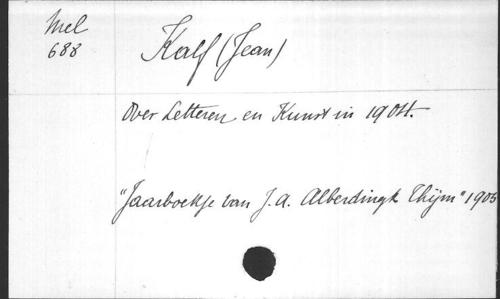 Mel
688
Kalf (Jean)
Over Letteren en Kunst in 1904.
"Jaarboekje van J. A. Alberdingk Thijm" 1905